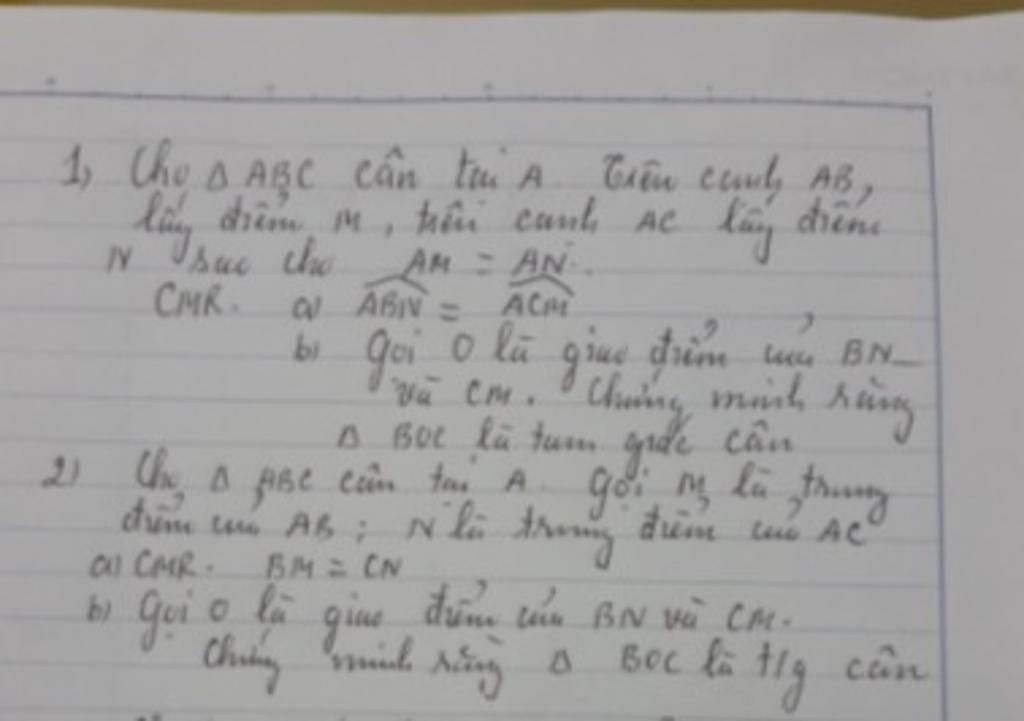 1, Cho Δ ABC cân tại A Trên cạnh AB,
lấy điểm M, trên cạnh AC lấy điểm
N sao cho AM = AN.
CMR. a) ABN = ACM
b) Gọi O là giao điểm của BN
và CM. Chứng minh rằng
Δ BOC là tam giác cân
2) Cho Δ ABC cân tại A. Gọi M là trung
điểm của AB; N là trung điểm của AC
a) CMR. BM = CN
b) Gọi O là giao điểm của BN và CM.
Chứng minh rằng Δ BOC là t/g cân